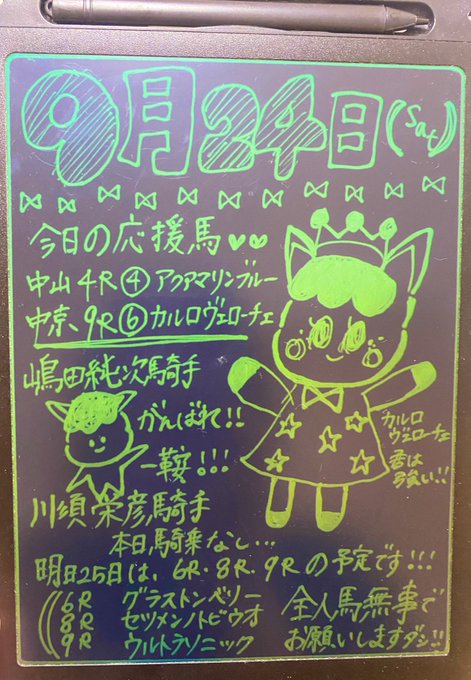 9月24日(Sat)
今日の応援馬
中山4R④アクアマリンブルー
中京9R⑥カルロヴェローチェ
嶋田純次騎手
がんばれ!!
一鞍!!!
カルロ
ヴェローチェ
君は
強い!!
川須栄彦騎手
本日騎乗なし…
明日25日は、6R・8R・9Rの予定です!!!
6R グラストンベリー
8R セツメンノトビウオ
9R ウルトラソニック
全人馬無事で
お願いしますダシ!!